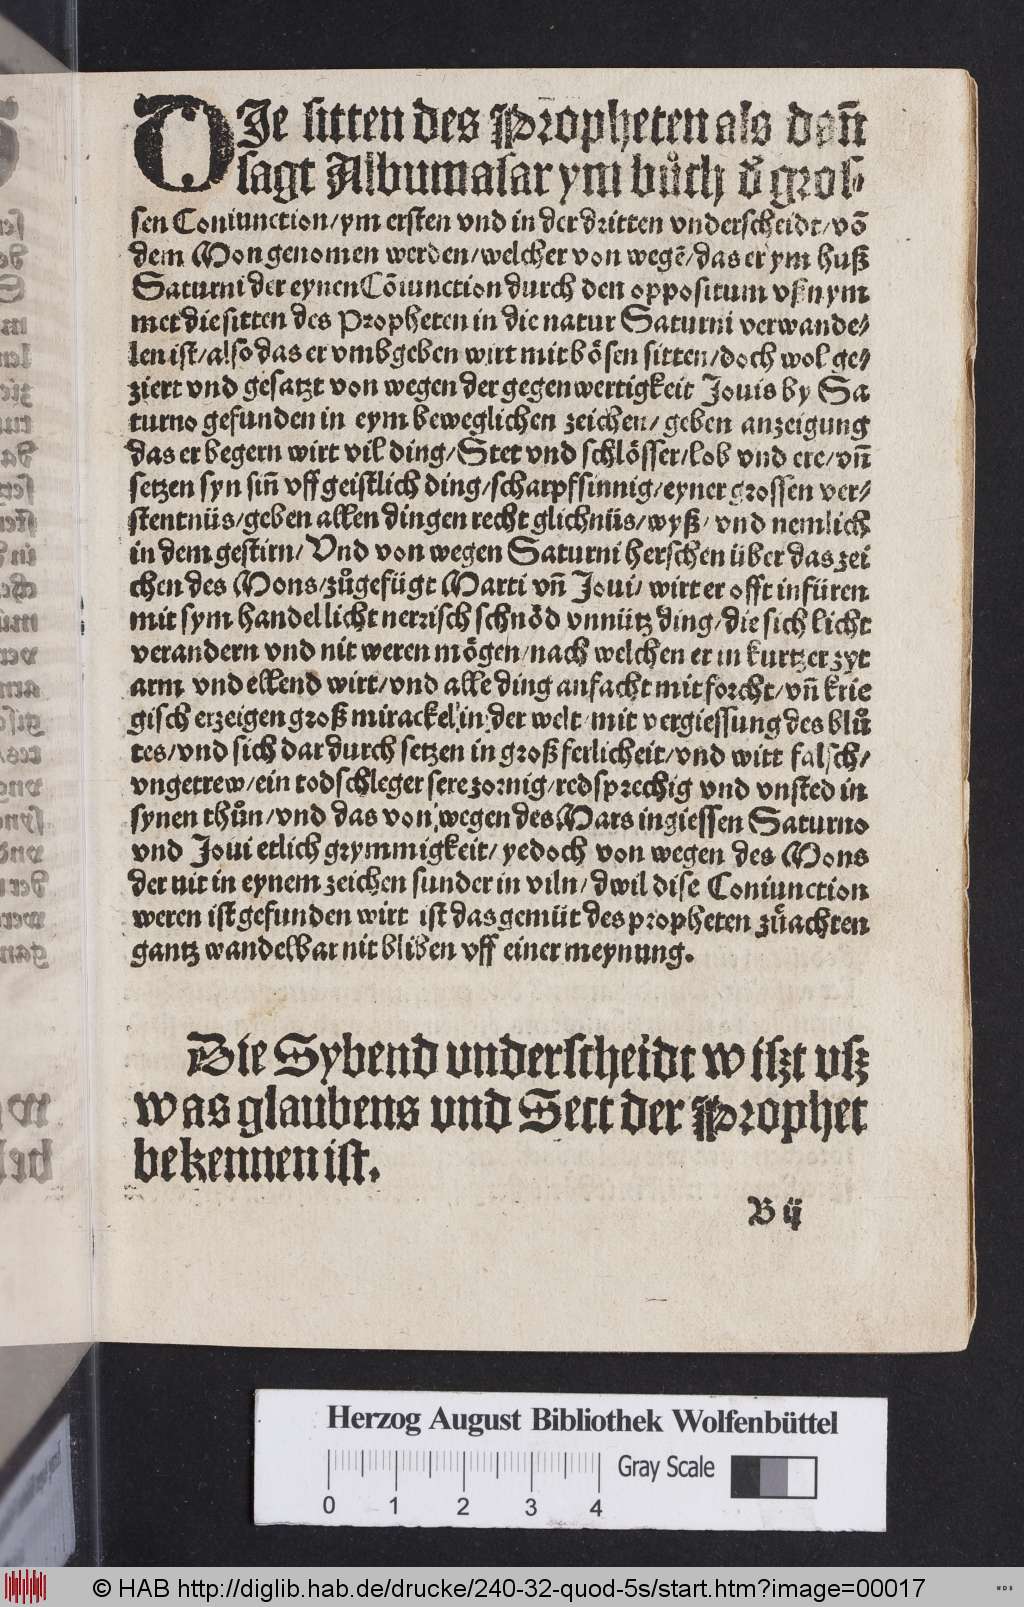 DJe sitten des Propheten als dañ
sagt Albumasar ym bůch d̕ gros-
sen Coniunction/ym ersten vnd in der dritten vnderscheidt/vō
dem Mon genomen werden/welcher von wegē/das er ym huß
Saturni der eynen Cōiunction durch den oppositum vßnym
met die sitten des Propheten in die natur Saturni verwande-/
len ist/also das er vmbgeben wirt mit bösen sitten/doch wol ge-/
ziert vnd gesatzt von wegen der gegenwertigkeit Jouis by Sa
turno gefunden in eym beweglichen zeichen/geben anzeigung
das er begern wirt vil ding/Stet vnd schlösser/lob vnd ere/vñ
setzen syn siñ vff geistlich ding/scharpfsinnig/eyner grossen ver-/
stentnüs/geben allen dingen recht glichnüs/wyß/vnd nemlich
in dem gestirn/Vnd von wegen Saturni herschen über das zei
chen des Mons/zůgefügt Marti vñ Joui/wirt er offt infüren
mit sym handel licht nerrisch schnöd vnnütz ding/die sich licht
verandern vnd nit weren mögen/nach welchen er in kurtzer zyt
arm vnd ellend wirt/vnd alle ding anfacht mit forcht/vñ krie
gisch erzeigen groß mirackel in der welt mit vergiessung des blů
tes/vnd sich dar durch setzen in groß ferlicheit/vnd witt falsch/
vngetrew/ein todschleger sere zornig/redsprechig vnd vnsted in
synen thůn/vnd das von wegen des Mars ingiessen Saturno
vnd Joui etlich grymmigkeit/yedoch von wegen des Mons
der nit in eynem zeichen sunder in viln/dwil dise Coniunction
weren ist gefunden wirt ist das gemüt des propheten zůachten
gantz wandelbar nit bliben vff einer meynung.
Die Sybend underscheidt wiszt usz
was glaubens und Sect der Prophet
bekennen ist.
B ij
Herzog August Bibliothek Wolfenbüttel
Gray Scale
0 1 2 3 4
© HAB http://diglib.hab.de/drucke/240-32-quod-5s/start.htm?image=00017